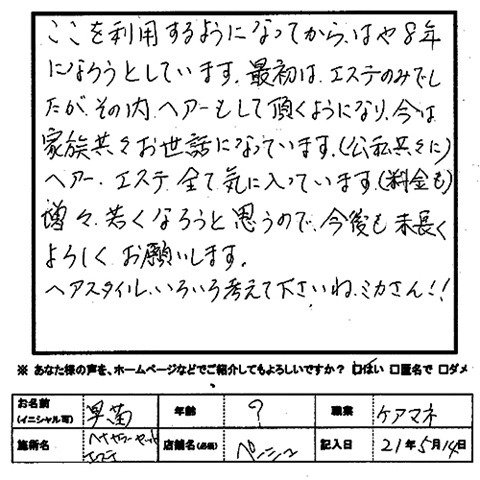 ここを利用するようになってから、はや8年
になろうとしています。最初は、エステのみでし
たが、その内、ヘアーもして頂くようになり、今は
家族共々お世話になっています。(公私共々に)
ヘアー、エステ、全て気に入っています。(料金も)
増々、若くなろうと思うので、今後も末長く
よろしくお願いします。
ヘアスタイル、いろいろ考えて下さいね、ミカさん!!
※ あなた様の声を、ホームページなどでご紹介してもよろしいですか? □はい □匿名で □ダメ
お名前 (イニシャル可) 早苗 年齢 ? 職業 ケアマネ
施術名 エステ 店舗名(必須) 記入日 21年5月14日